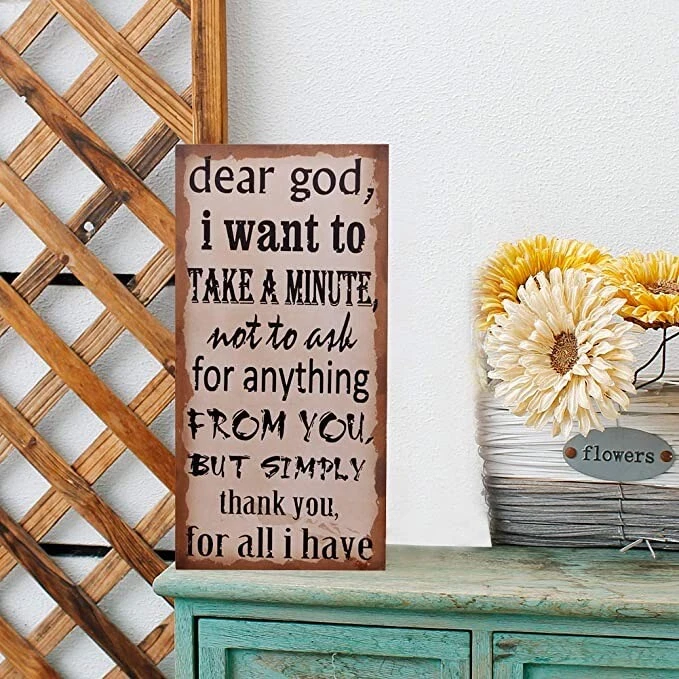 dear god,
i want to
TAKE A MINUTE,
not to ask
for anything
FROM YOU,
BUT SIMPLY
thank you,
for all i have
flowers